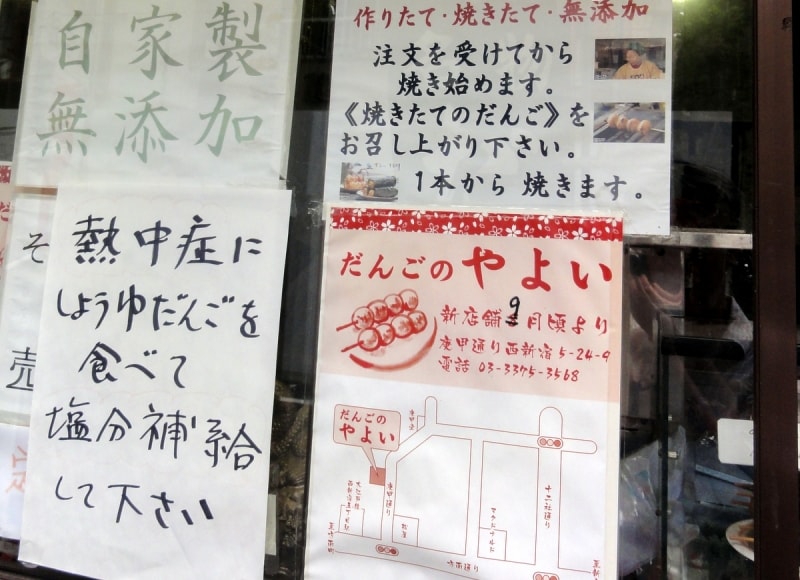 自家製
無添加
作りたて・焼きたて・無添加
注文を受けてから
焼き始めます。
《焼きたてのだんご》を
お召し上がり下さい。
1本から 焼きます。
熱中症に
しょうゆだんごを
食べて
塩分補給
して下さい
そ
だんごの やよい
新店舗9月頃より
庚甲通り西新宿5-24-9
電話 03-3375-3568
だんごの
やよい
庚甲通り
十二社通り
マクドナルド
方南通り